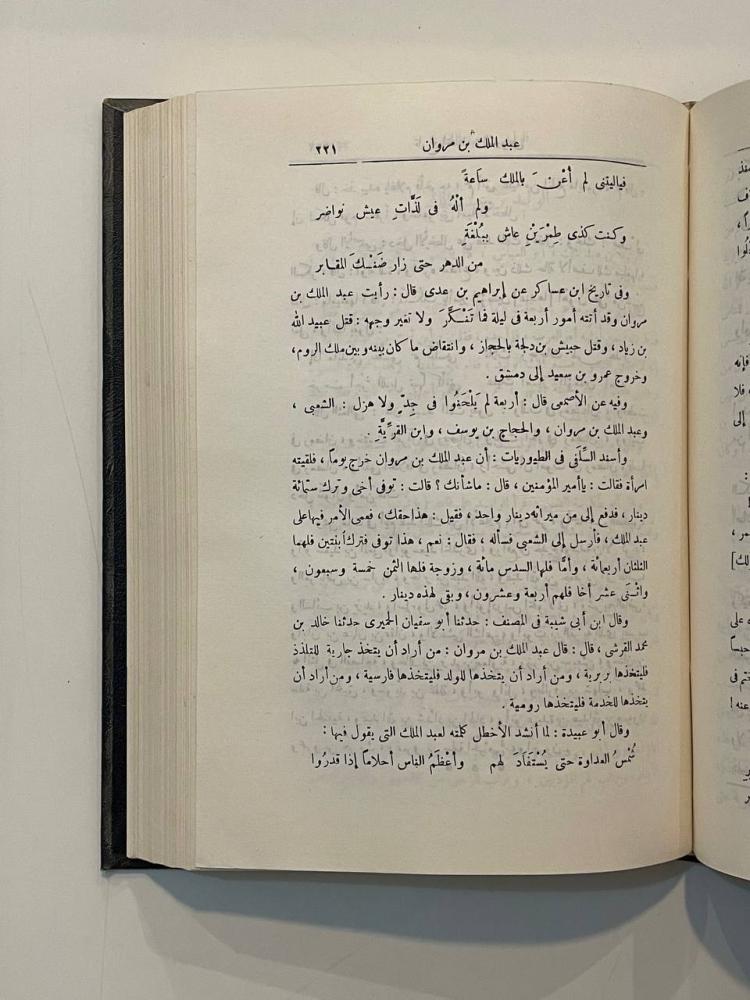 عبد الملك بن مروان
٢٢١
فياليتنى لم أعْنَ بالملك ساعةً
ولم ألْهُ فى لَذَّاتِ عيش نواضر
وكنت كذى طِمْرَيْنِ عاش ببُلْغَةٍ
من الدهر حتى زار ضَنْكَ المقابر
وفى تاريخ ابن عساكر عن إبراهيم بن عدى قال : رأيت عبد الملك بن
مروان وقد أتته أمور أربعة فى ليلة فما تَنَكَّرَ ولا تغير وجهه : قتل عبيد الله
بن زياد ، وقتل حبيش بن دلجة بالحجاز ، وانتقاض ما كان بينه وبين ملك الروم ،
وخروج عمرو بن سعيد إلى دمشق .
وفيه عن الأصمعى قال : أربعة لم يَلْحَنُوا فى جِدٍّ ولا هزل : الشعبى ،
وعبد الملك بن مروان ، والحجاج بن يوسف ، وابن القِرِّيَّةِ .
وأسند السِّلَفى فى الطيوريات : أن عبد الملك بن مروان خرج يوماً ، فلقيته
امرأة فقالت : يا أمير المؤمنين ، قال : ماشأنك ؟ قالت : توفى أخى وترك ستمائة
دينار ، فدفع إلى من ميراثه دينار واحد ، فقيل : هذا حقك ، فعمى الأمر فيها على
عبد الملك ، فأرسل إلى الشعبى فسأله ، فقال : نعم ، هذا توفى فترك ابنتين فلهما
الثلثان أربعمائة ، وأمًّا فلها السدس مائة ، وزوجة فلها الثمن خمسة وسبعون ،
واثْنَى عشر أخا فلهم أربعة وعشرون ، وبقى لهذه دينار .
وقال ابن أبى شيبة فى المصنف : حدثنا أبو سفيان الحميرى حدثنا خالد بن
محمد القرشى ، قال : قال عبد الملك بن مروان : من أراد أن يتخذ جارية للتلذذ
فليتخذها بربرية ، ومن أراد أن يتخذها للولد فليتخذها فارسية ، ومن أراد أن
يتخذها للخدمة فليتخذها رومية .
وقال أبو عبيدة : لما أنشد الأخطل كلمته لعبد الملك التى يقول فيها :
شُمْسُ العداوة حتى يُسْتَقَادَ لهم وأعْظَمُ الناس أحلاماً إذا قدرُوا